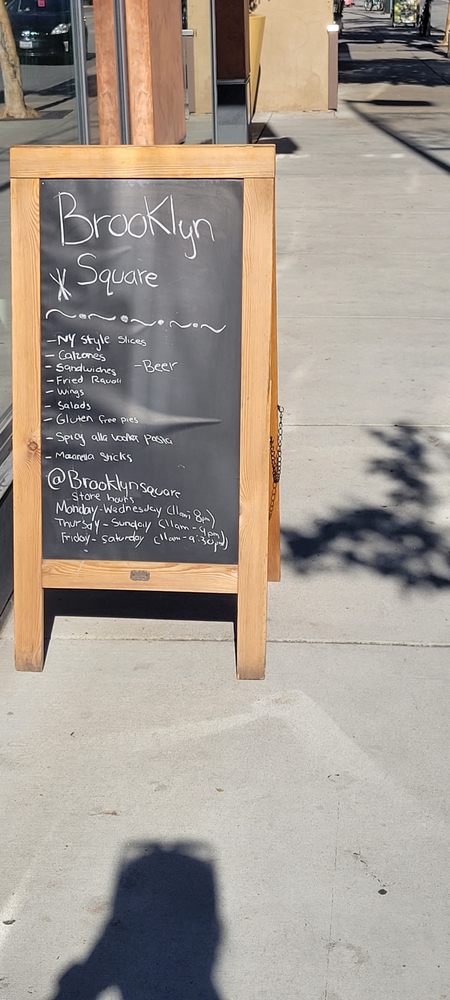 Brooklyn
Square
- NY Style Slices
- Calzones
- Sandwiches - Beer
- Fried Ravoli
- Wings
- Salads
- Gluten free pies
- Spicy alla vodka pasta
- Mozarella Sticks
@Brooklynsquare
Store hours
Monday-Wednesday (11am-8pm)
Thursday - Sunday (11am - 9pm)
Friday - Saturday (11am - 9:30pm)